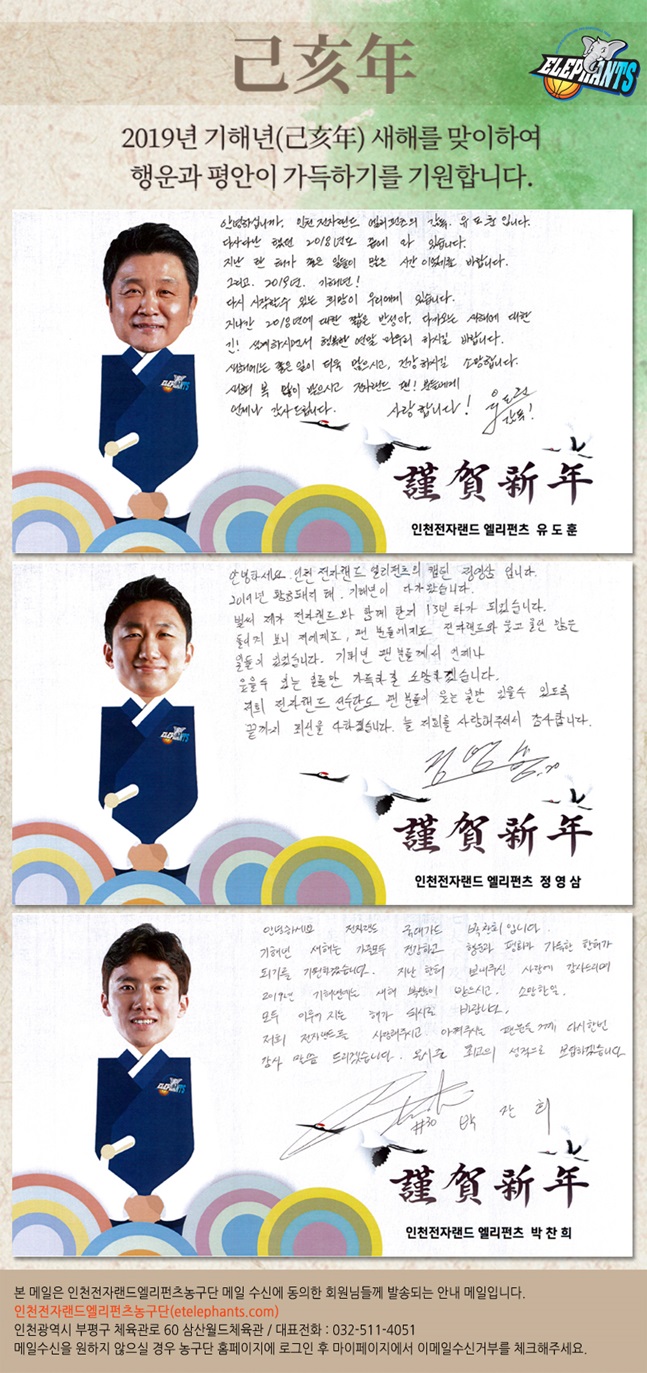 己亥年
ELEPHANTS
2019년 기해년(己亥年) 새해를 맞이하여
행운과 평안이 가득하기를 기원합니다.
안녕하십니까. 인천 전자랜드 엘리펀츠의 감독. 유도훈입니다.
다사다난 했던 2018년도 끝에 와 있습니다.
지난 한 해가 좋은 일들이 많은 시간이었길 바랍니다.
그리고. 2019년. 기해년!
다시 시작할수 있는 희망이 우리에게 있습니다.
지나간 2018년에 대한 짧은 반성과, 다가오는 새해에 대한
긴! 설계하시면서 행복한 연말 마무리 하시길 바랍니다.
새해에는 좋은일이 더욱 많으시고, 건강하시길 소망합니다.
새해 복 많이 받으시고 전자랜드 팬! 분들에게
언제나 감사드립니다. 사랑합니다! 유도훈
감독!
ELEPHANTS
謹賀新年
인천전자랜드 엘리펀츠 유도훈
안녕하세요. 인천 전자랜드 엘리펀츠의 캡틴 정영삼 입니다.
2019년 황금돼지 해. 기해년이 다가왔습니다.
벌써 제가 전자랜드와 함께 한지 13년 차가 되었습니다.
돌이켜 보니 저에게도, 팬 분들에게도 전자랜드와 웃고 울던 많은
일들이 있었습니다. 기해년 팬 분들께서 언제나
웃을수 있는 일들만 가득하길 소망하겠습니다.
저희 전자랜드 선수단도 팬 분들이 웃는 일만 있을수 있도록
끝까지 최선을 다하겠습니다. 늘 저희를 사랑해주셔서 감사합니다.
정영삼
ELEPHANTS
謹賀新年
인천전자랜드 엘리펀츠 정영삼
안녕하세요 전자랜드 국대가드 박찬희입니다.
기해년 새해는 가족모두 건강하고 행운과 평화가 가득한 한해가
되기를 기원하겠습니다. 지난 한해 보내주신 사랑에 감사드리며
2019년 기해년에는 새해 복많이 받으시고. 소망한일.
모두 이루어 지는 해가 되시길 바랍니다.
저희 전자랜드를 사랑해주시고 아껴주시는 팬분들께 다시한번
감사 말씀 드리겠습니다. 올시즌 최고의 성적으로 보답하겠습니다
#30 박찬희
ELEPHANTS
謹賀新年
인천전자랜드 엘리펀츠 박찬희
본 메일은 인천전자랜드엘리펀츠농구단 메일 수신에 동의한 회원님들께 발송되는 안내 메일입니다.
인천전자랜드엘리펀츠농구단(etelephants.com)
인천광역시 부평구 체육관로 60 삼산월드체육관 / 대표전화 : 032-511-4051
메일수신을 원하지 않으실 경우 농구단 홈페이지에 로그인 후 마이페이지에서 이메일수신거부를 체크해주세요.